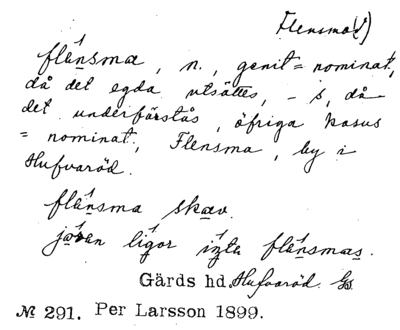 Flensma(d)
flänsmæ, n., genit = nominat,
då det egda utsättes, – s, då
det underförstås, öfriga kasus
= nominat, Flensma, by i
Hufvaröd.
flänsma skæv.
jøran ligor inta flänsmas.
Gärds hd. Hufvaröd.
№ 291. Per Larsson 1899.